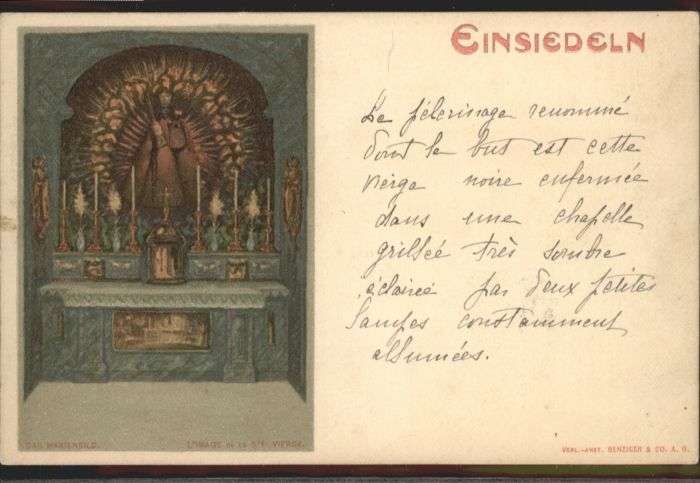 EINSIEDELN
Le pélerinage renommé
dont le but est cette
vierge noire enfermée
dans une chapelle
grillée très sombre
éclairée par deux petites
lampes constamment
allumées.
DAS MARIENBILD.
L'IMAGE DE LA STE VIERGE.
VERL.-ANST. BENZIGER & CO. A. G.